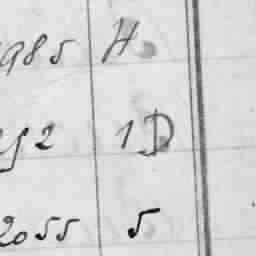 985 H.
2 1D
2055 5